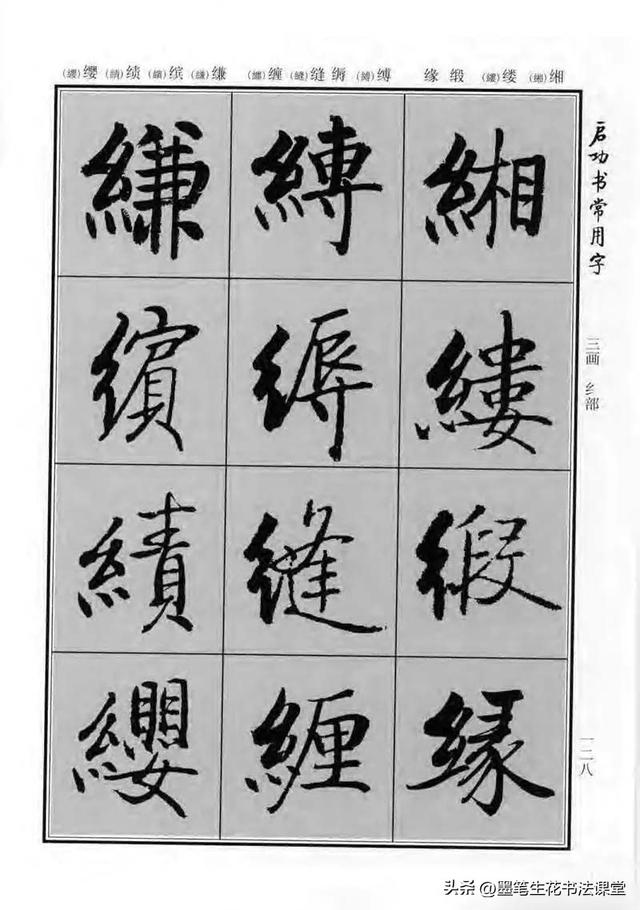 缃(緗)缕(縷)缎缘
缚(縛)缛缝(縫)缠(纏)
缣(縑)缤(繽)绩(績)缨(纓)
启功书常用字
三画 纟部
一二八
緗
縷
缎
缘
縛
缛
縫
缠
縑
繽
績
纓
头条 @墨笔生花书法课堂